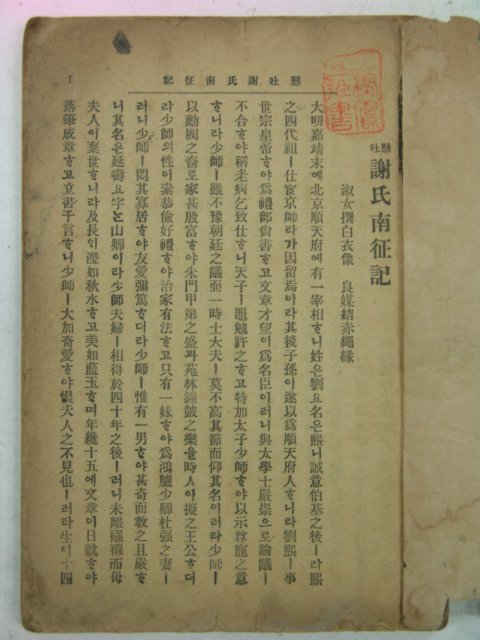 懸吐 謝氏南征記
淑女撰白衣像　良媒結赤繩緣
大明嘉靖末에北京順天府에有一宰相ᄒᆞ니姓은劉요名은熙ㅣ니誠意伯基之後ㅣ라熙
之四代祖ㅣ仕宦京師라가因留焉이라其後子孫이遂以爲順天府人ᄒᆞ니라劉熙ㅣ事
世宗皇帝ᄒᆞ야爲禮部尙書ᄒᆞ고文章才望이爲名臣이러니與太學士嚴崇으로論議ㅣ
不合ᄒᆞ야稱老病乞致仕ᄒᆞ니天子ㅣ黽勉許之ᄒᆞ고特加太子少師ᄒᆞ야以示尊寵之意
ᄒᆞ니라少師ㅣ雖不豫朝廷之議而一時士大夫ㅣ莫不高其節而仰其名이러라少師ㅣ
以勳閥之裔로家甚殷富ᄒᆞ야朱門甲第之盛과苑林鍾鼓之樂을時人이擬之王公ᄒᆞ더
라少師의性이素恭儉好禮ᄒᆞ야治家有法ᄒᆞ고只有一妹ᄒᆞ야爲鴻臚少卿杜强之妻ㅣ
러니少師ㅣ悶其寡居ᄒᆞ야友愛彌篤ᄒᆞ더라少師ㅣ惟有一男ᄒᆞ야甚奇而敎之且嚴ᄒᆞ
니其名은延壽요字ᄂᆞᆫ山卿이라少師夫婦ㅣ相得於四十年之後ㅣ러니未離襁褓而母
夫人이棄世ᄒᆞ니라及長이瀅如秋水ᄒᆞ고美如藍玉ᄒᆞ며年纔十五에文章이日就ᄒᆞ야
落筆成章ᄒᆞ고立書千言ᄒᆞ니少師ㅣ大加奇愛ᄒᆞ야恨夫人之不見也ㅣ러라生이十四
懸吐謝氏南征記
1